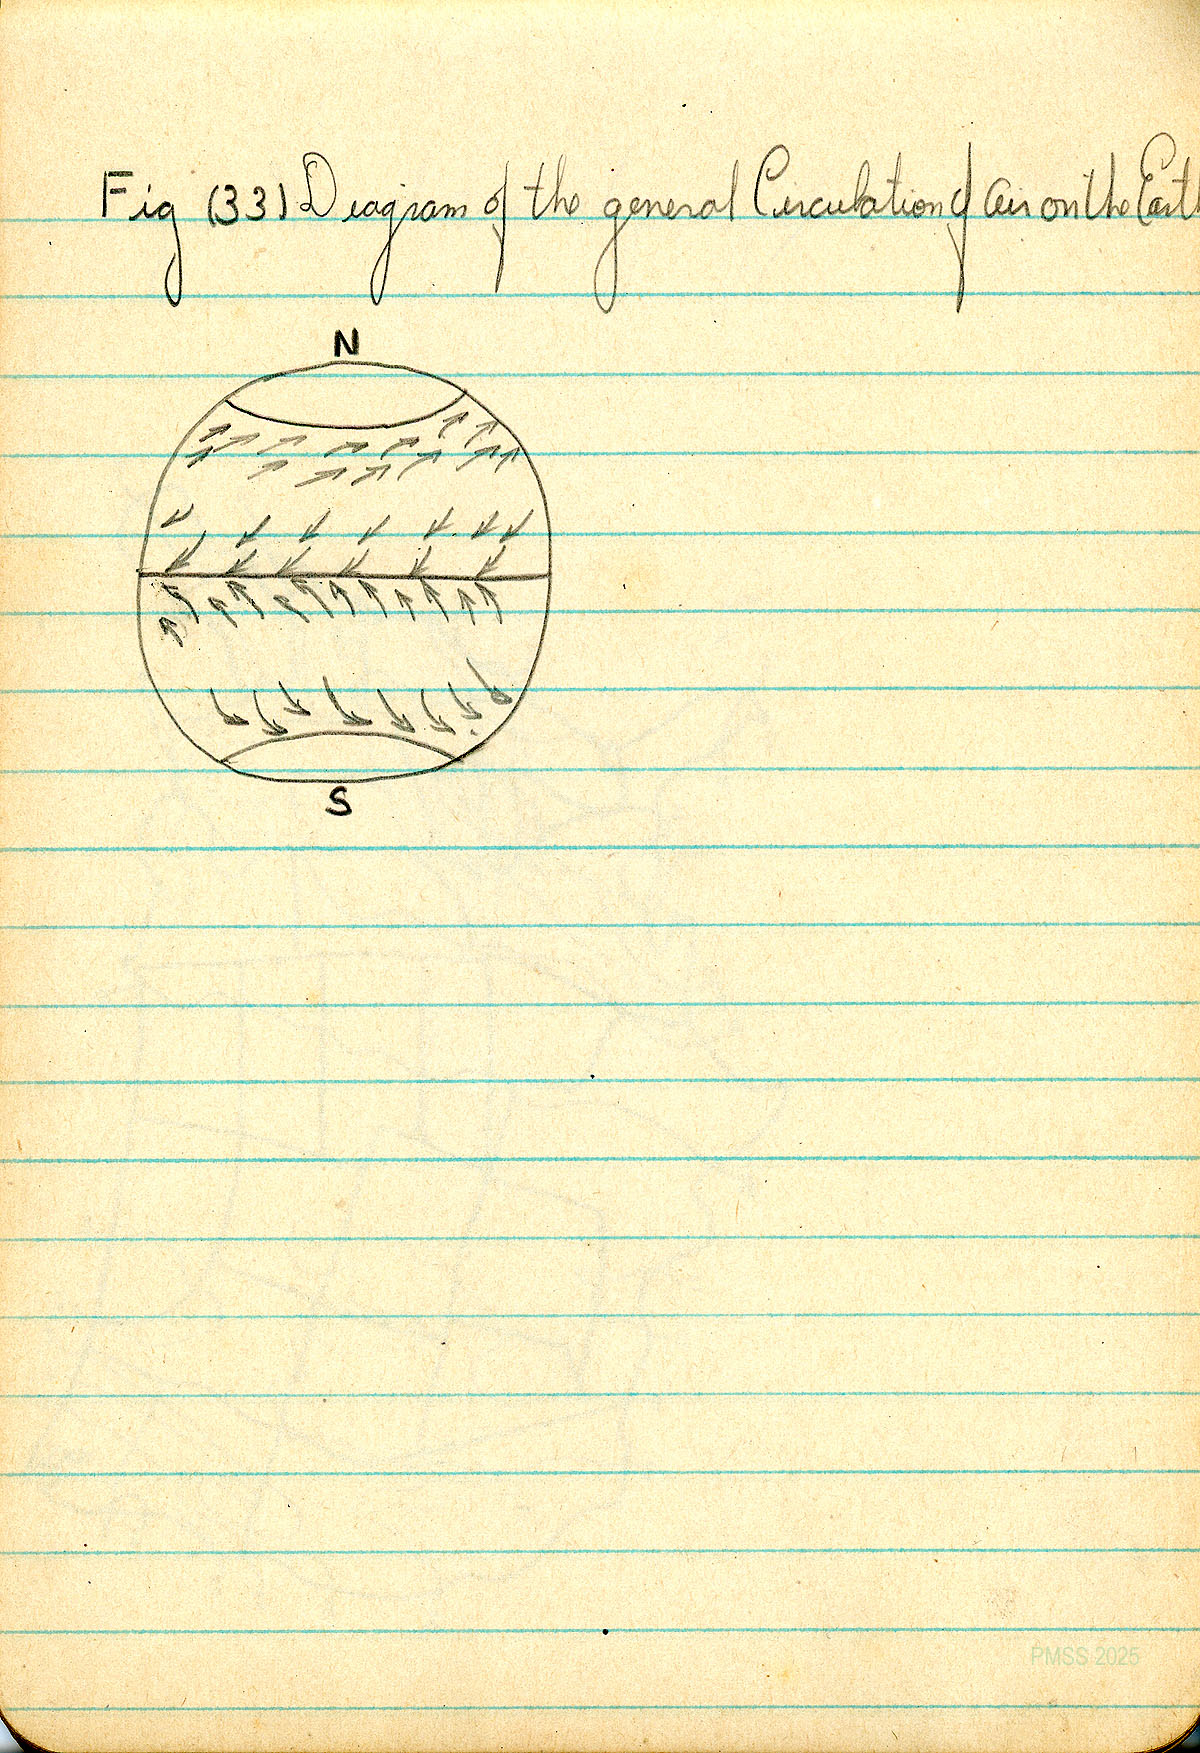 Fig (33) Diagram of the general Circulation of Air on the Earth
N
S
PMSS 2025